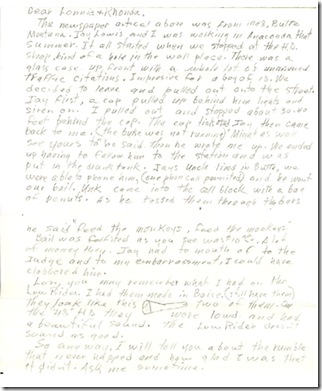 Dear Lonnie & Rhonda.
The newspaper artical above was from 1968, Butte
Montana. Jay Lewis, and I was working in Anaconda that
summer. It all started when we stopped at the H.D.
shop, kind of a hole in the wall place. There was a
glass case up front with a whole lot of unanswered
traffic citations. Impressive for a boy of 18. We
decided to leave and pulled out onto the street.
Jay first, a cop pulled up behind him lights and
siren. I pulled out and stopped about 50 ft
feet behind the cop. The cop Jay then came
back to me. (the bike was not running) Might as well
see yours to he said then he wrote me up. We ended
up having to follow him to the station and was
put in the drunk tank. Jays uncle lived in Butte, we
were able to phone him, (one phone call permitted) and he went
our bail. Unk came into the cell block with a bag
of donuts. As he tossed them through the bars
he said "feed the monkeys, feed the monkeys"
Bail was forfeited as you see was $10.00. A lot
of money then. Jay had to mouth off to the
Judge and to my embarressment, I could have
clobbered him.
Lony, you may remember what I had on the
Low Rider. I had them made in Boise. (still have them)
they look like this two of them. On
the H.D. they were loud and had
a beautiful sound. The Low Rider doesn't
sound as good.
So anyway, I will tell you about the rumble
that never happend and how glad I was that
it didn't. Ask me sometime.